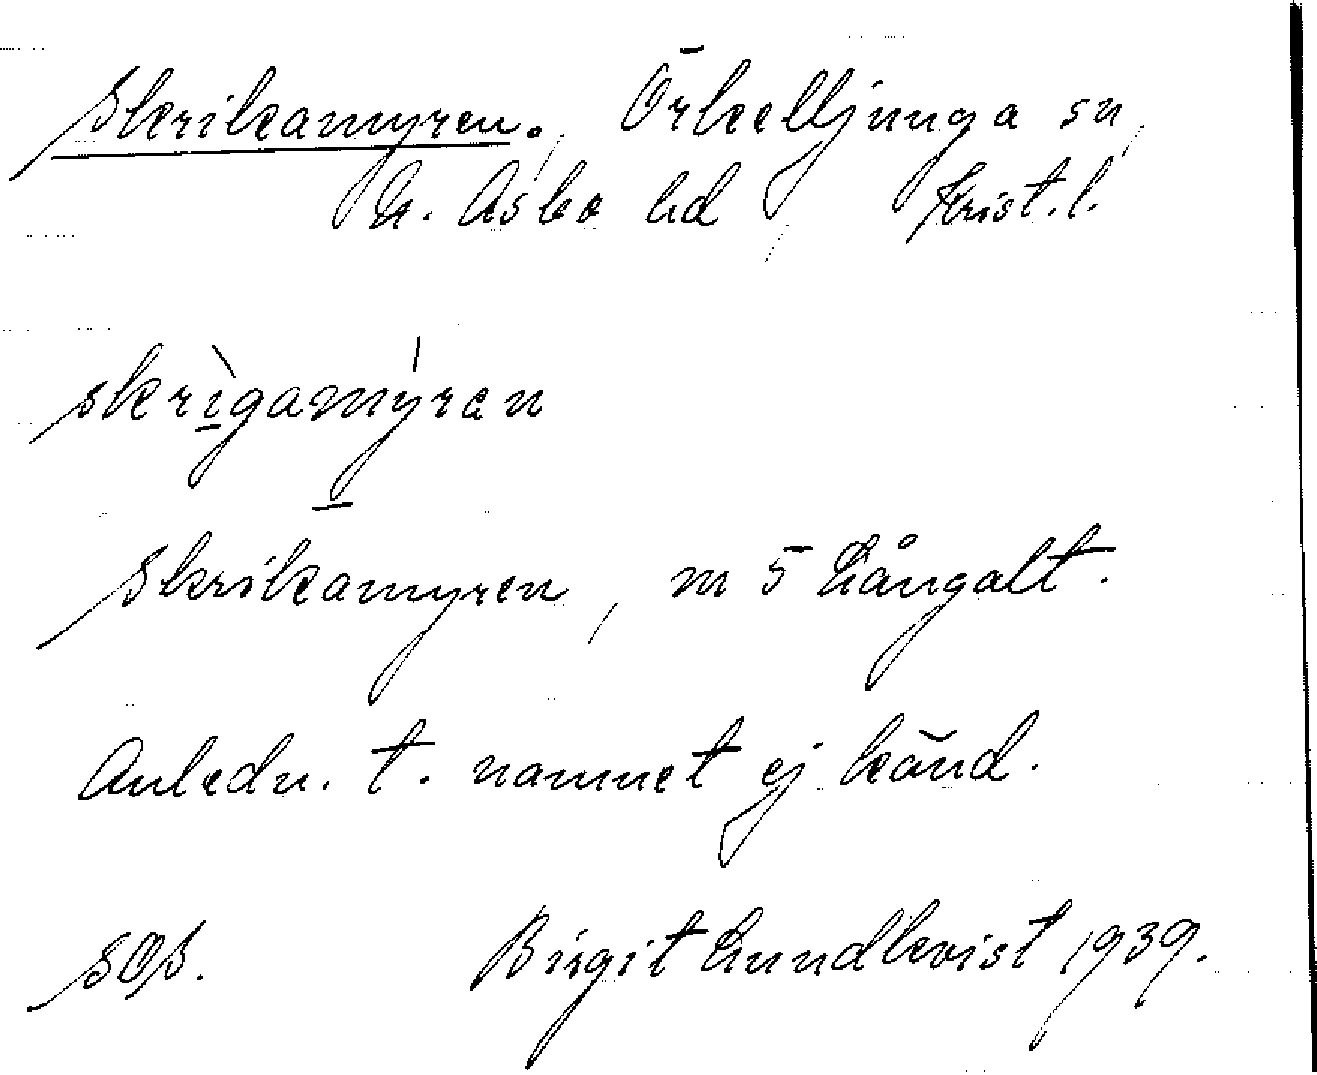 Skrikamyren. Örkelljunga sn,
N. Åsbo hd, Krist. l.
skrìgamýren
Skrikamyren, m 5 Långalt.
Anledn. t. namnet ej känd.
Birgit Lundkvist 1939.